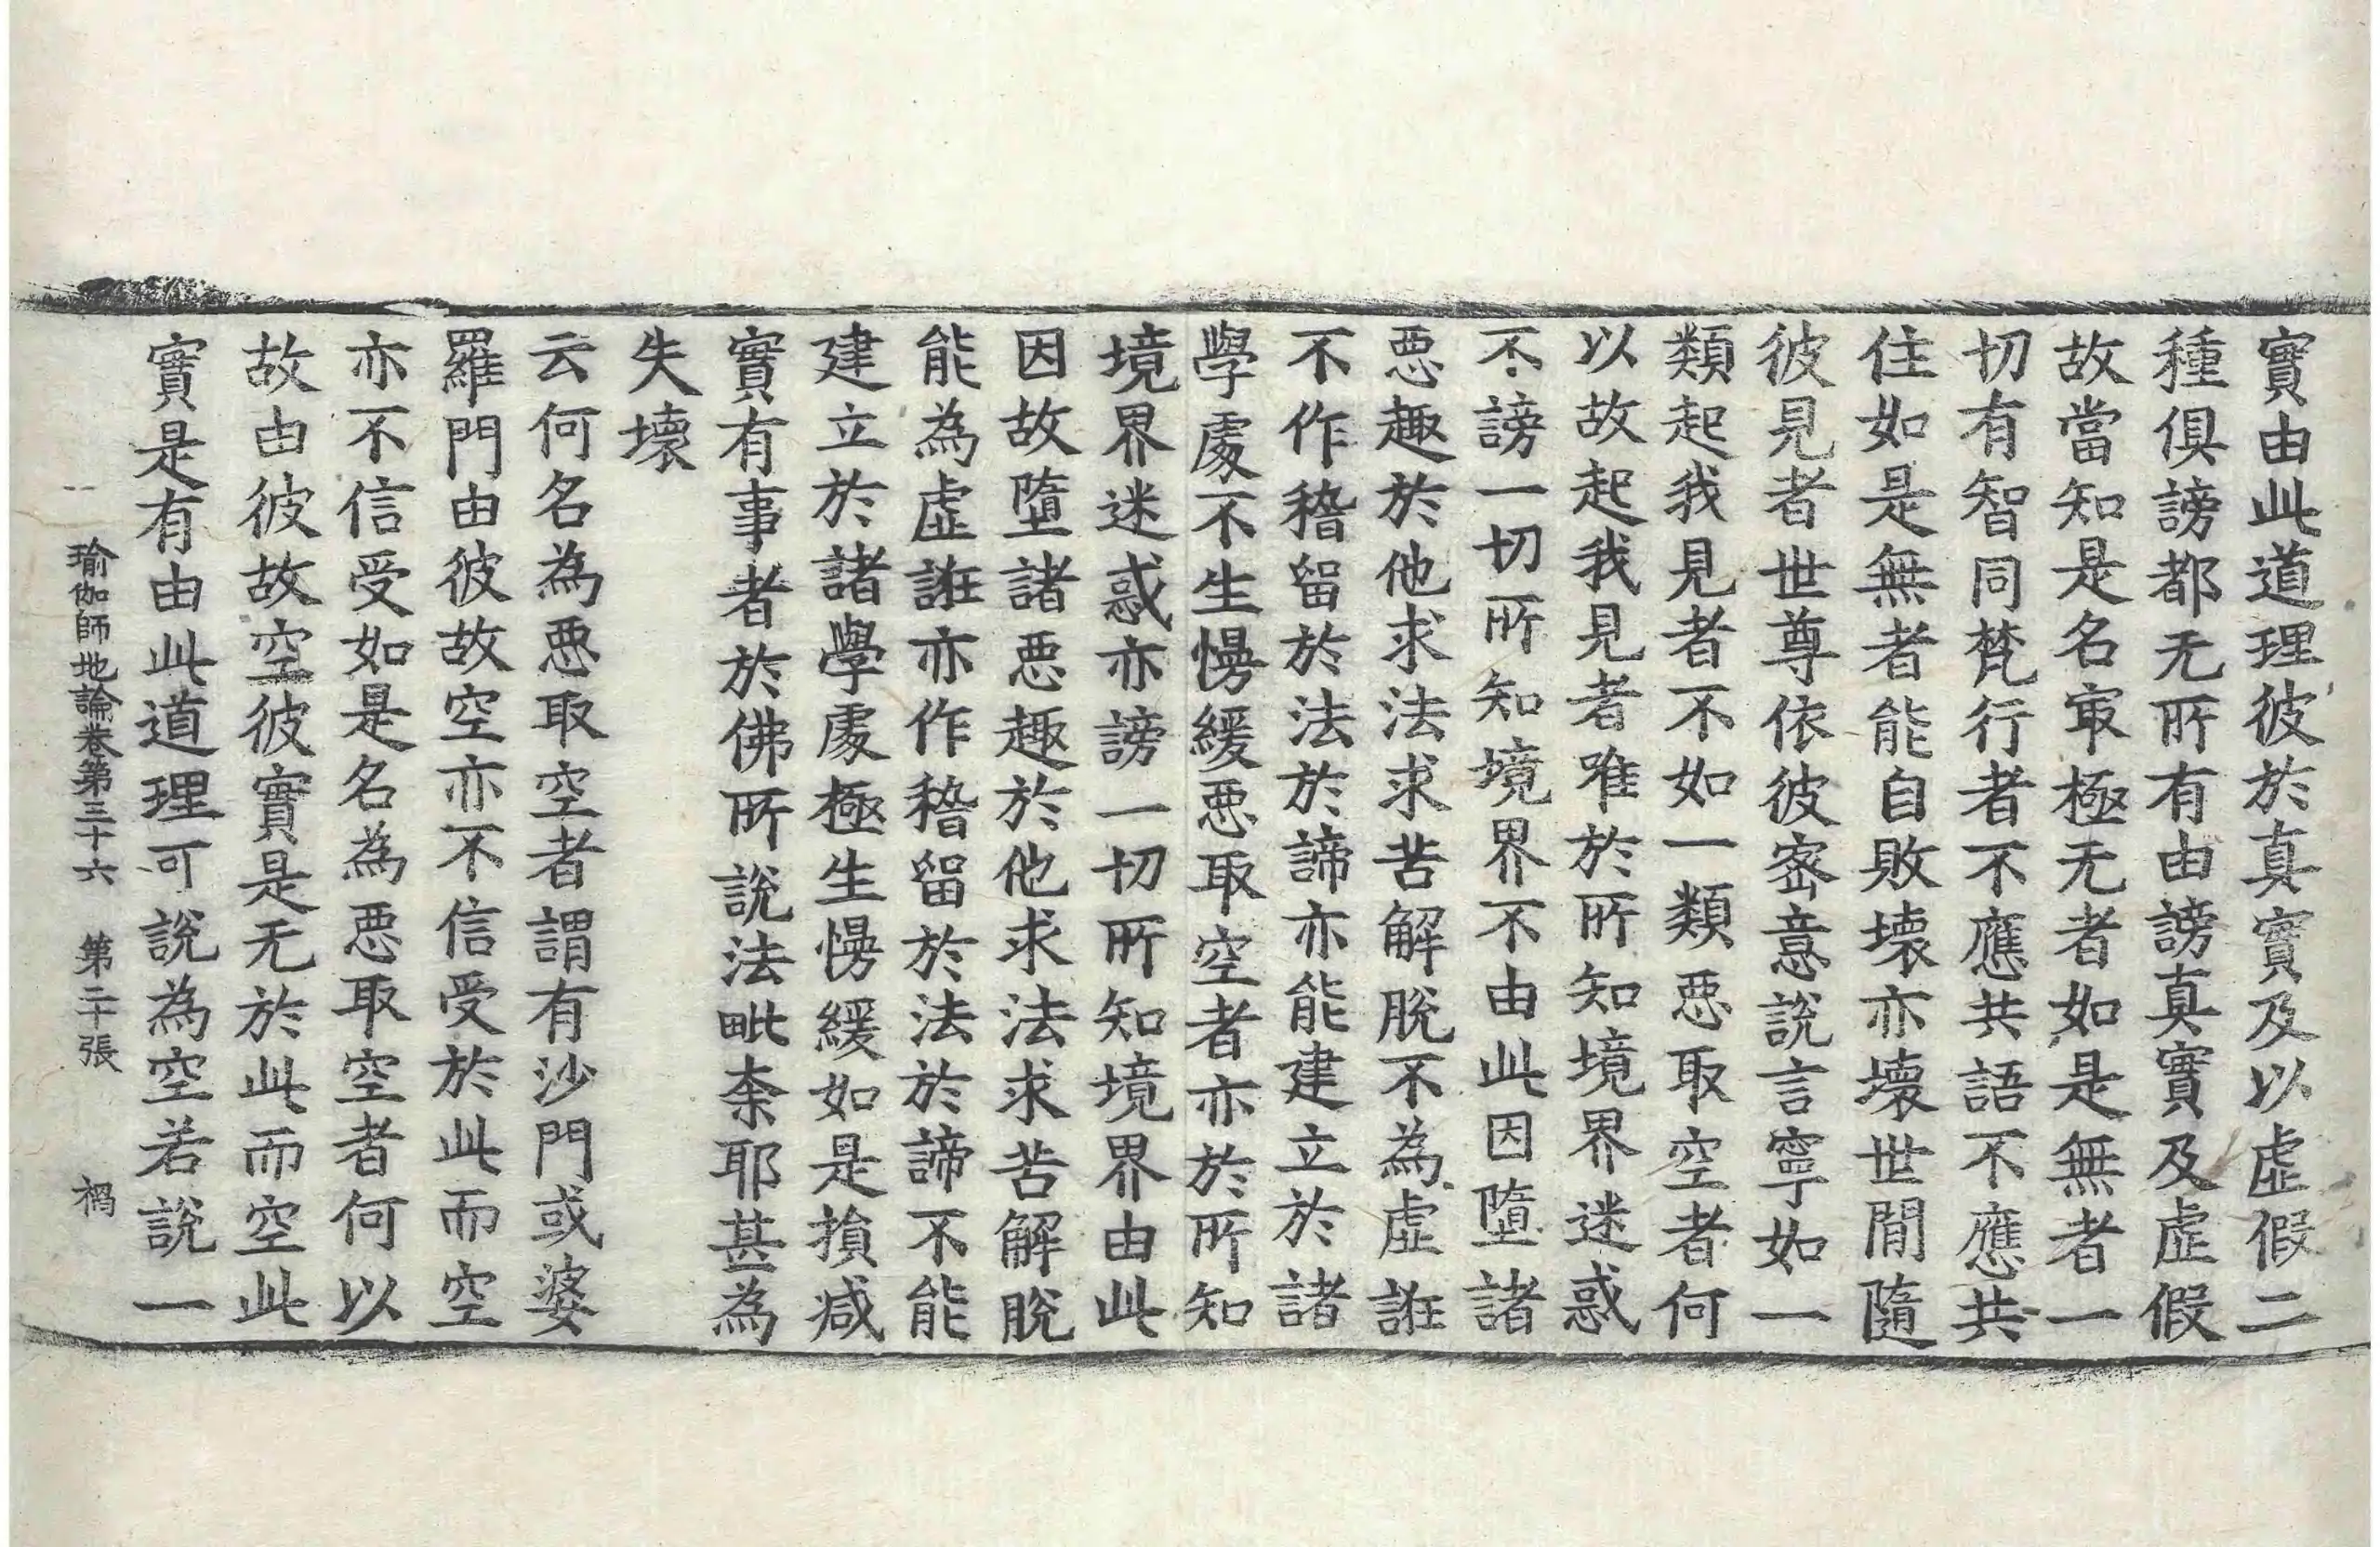 實由此道理彼於真實及以虛假二
種俱謗都无所有由謗真實及虛假
故當知是名㝡極无者如是無者一
切有智同梵行者不應共語不應共
住如是無者能自敗壞亦壞世間隨
彼見者世尊依彼密意說言寧如一
類起我見者不如一類惡取空者何
以故起我見者唯於所知境界迷惑
不謗一切所知境界不由此因墮諸
惡趣於他求法求苦解脫不為虛誑
不作稽留於法於諦亦能建立於諸
學處不生慢緩惡取空者亦於所知
境界迷惑亦謗一切所知境界由此
因故墮諸惡趣於他求法求苦解脫
能為虛誑亦作稽留於法於諦不能
建立於諸學處極生慢緩如是損减
實有事者於佛所說法毗柰耶甚為
失壞
云何名為惡取空者謂有沙門或婆
羅門由彼故空亦不信受於此而空
亦不信受如是名為惡取空者何以
故由彼故空彼實是无於此而空此
實是有由此道理可說為空若說一
瑜伽師地論卷第三十六 第二十張 禍